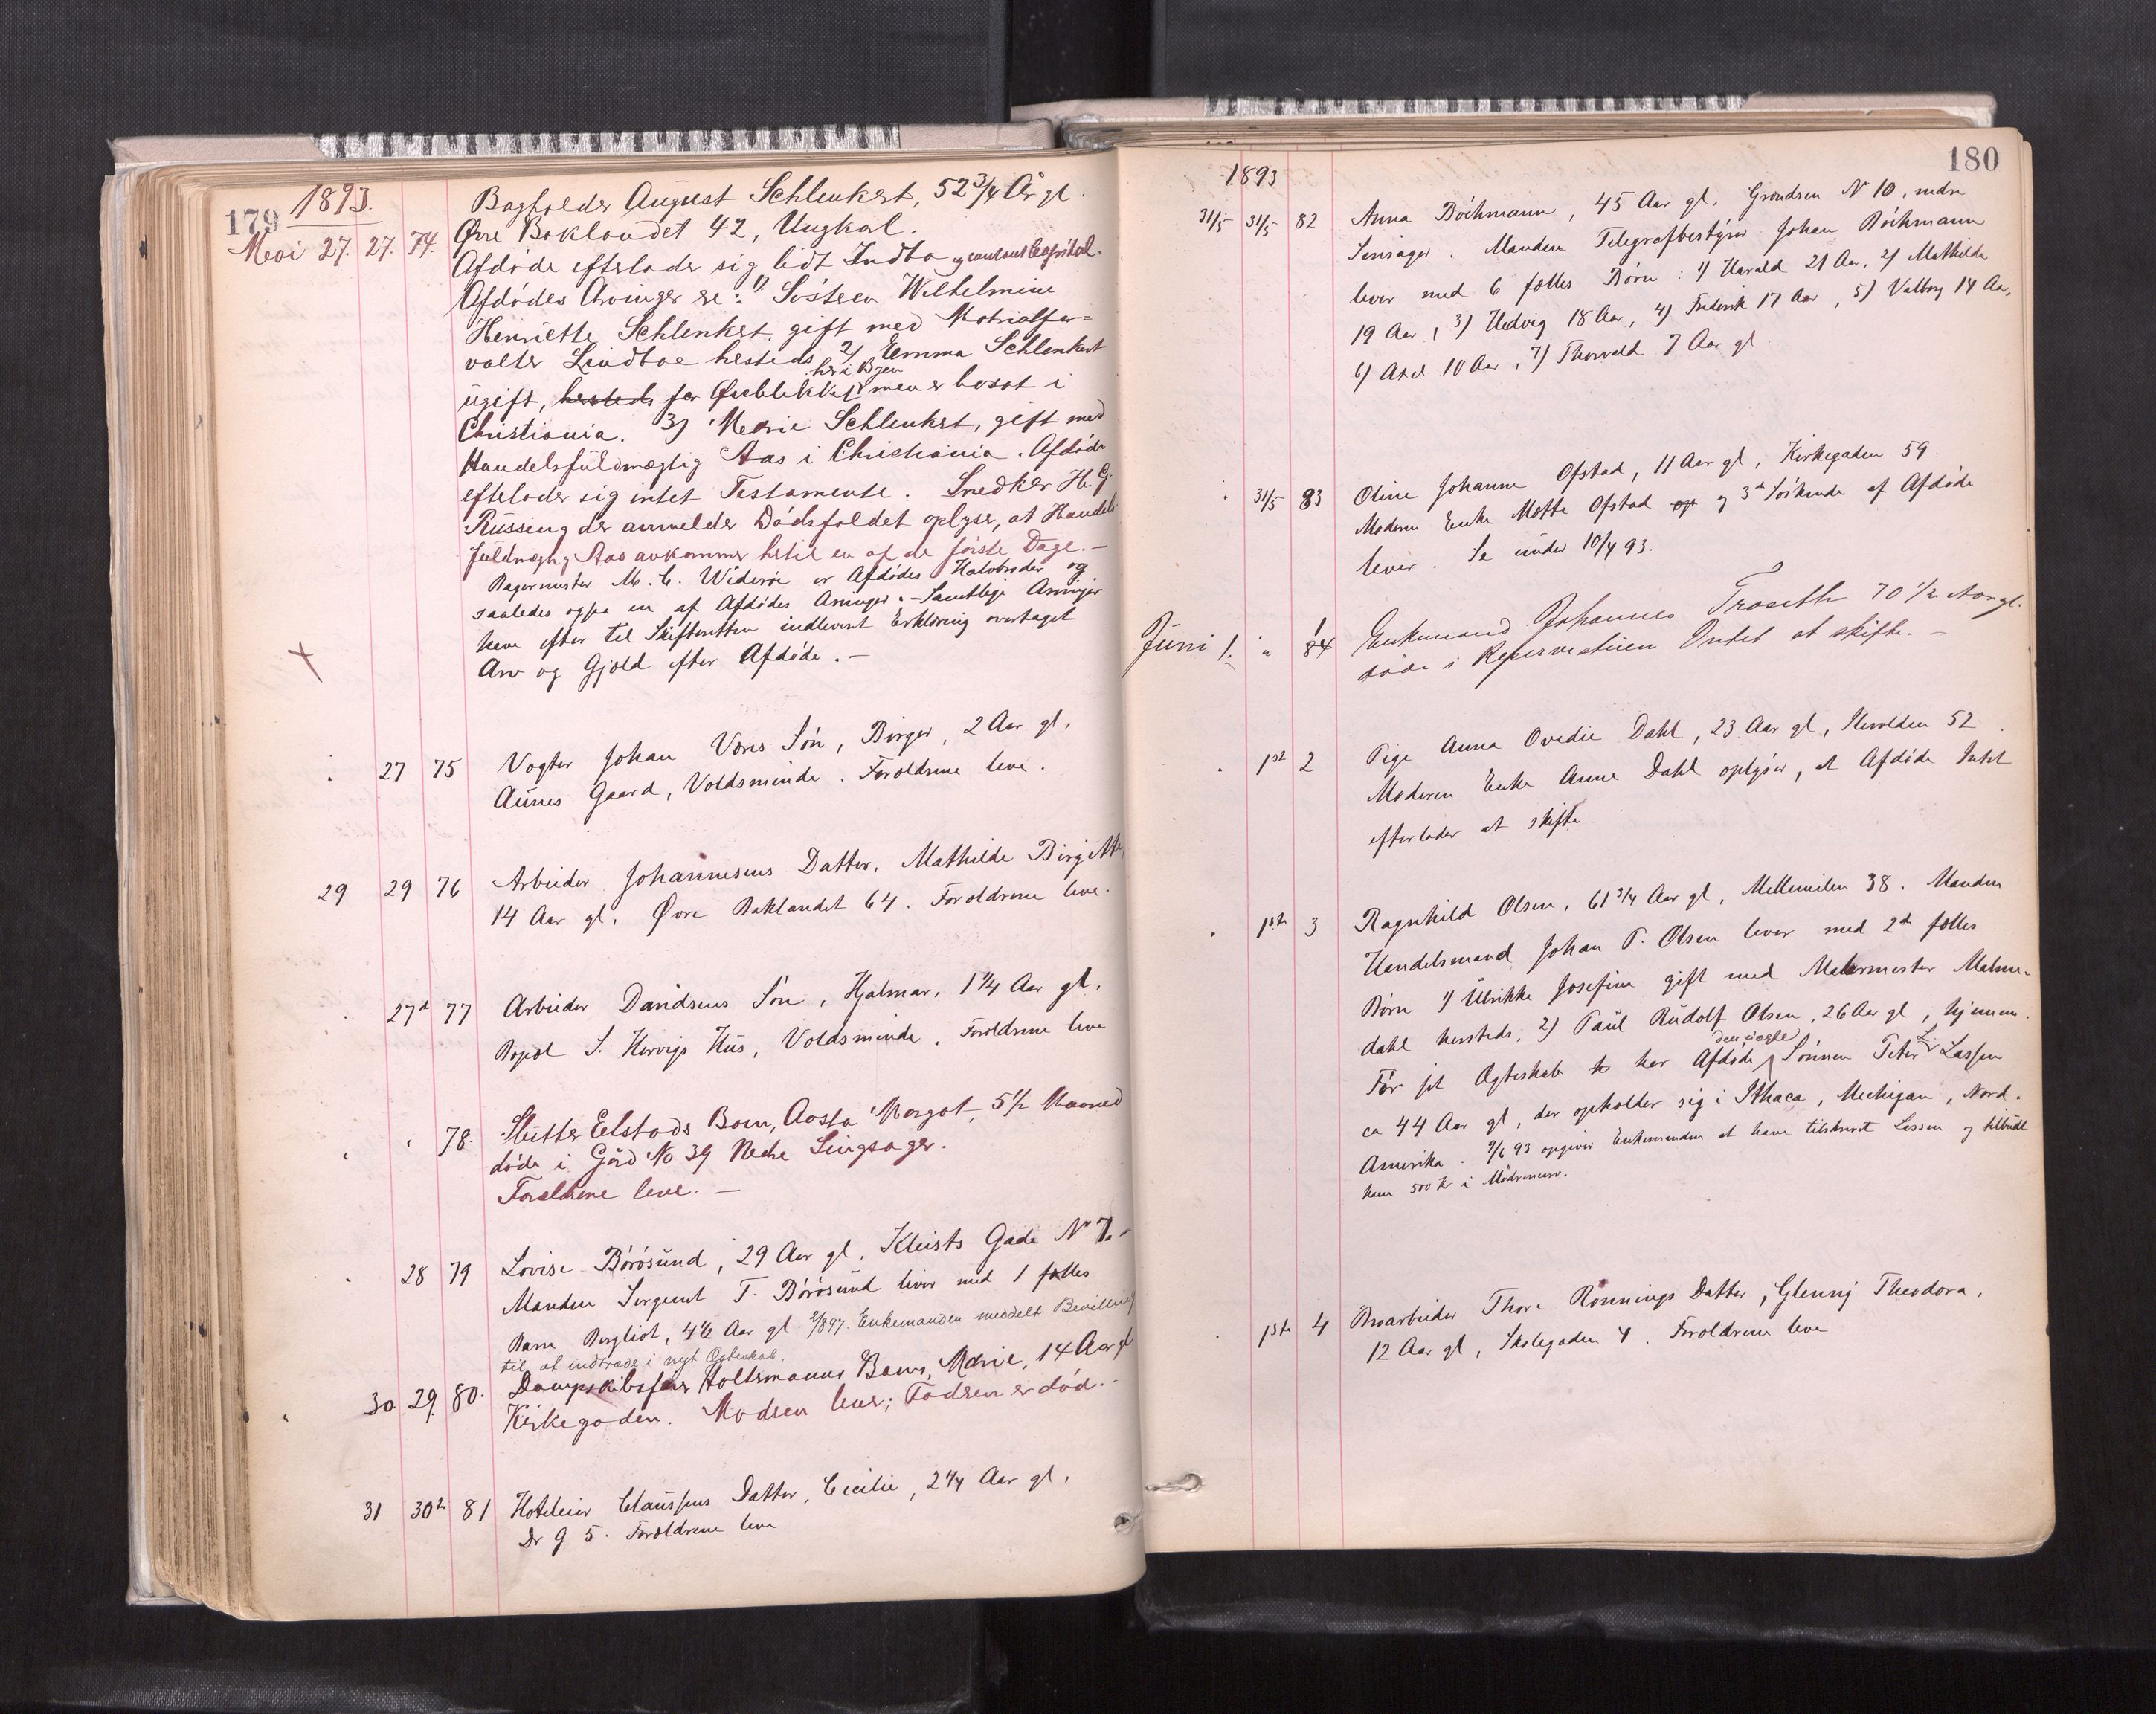 179
1893.
Mai 27. 27. 74. Bogholder August Schlenkert, 52 3/4 År gl.
Øvre Baklandet 42, Ungkarl.
Afdøde efterlader sig lidt Indbo og contant Capital.
Afdødes Arvinger ere: 1) Søsteren Wilhelmine
Henriette Schlenkert, gift med Matrialfor=
valter Lindboe hersteds 2) Emma Schlenkert
ugift, hersteds for Øieblikket her i Byen men er bosat i
Christiania. 3) Marie Schlenkert, gift med
Handelsfuldmægtig Aas i Christiania. Afdøde
efterlader sig intet Testamente. Snedker H. G.
Rüssing der anmelder Dødsfaldet oplyser, at Handels
fuldmægtig Aas ankommer hertil en af de første Dage.—
Bagermester M. C. Widerøe er Afdødes Halvbroder og
saaledes ogsaa en af Afdødes Arvinger.— Samtlige Arvinger
have efter til Skifteretten indleveret Erklæring overtaget
Arv og Gjæld efter Afdøde.—
27 75 Vogter Johan Vores Søn, Birger, 2 Aar gl.
Aunes Gaard, Voldsminde. Forældrene leve.
29 29 76 Arbeider Johannesens Datter, Mathilde Birgitte,
14 Aar gl. Øvre Baklandet 64. Forældrene leve.
27de 77 Arbeider Davidsens Søn, Hjalmar, 1 1/4 Aar gl.
S. Hervigs Hus, Voldsminde. Forældrene leve
78. Slutter Elstads Barn, Aasta Margot, 5 1/2 Maaned
døde i Gård No 39 Nedre Singsager.
Forældrene leve.—
28 79 Lovise Børøsund, 29 Aar gl. Kleists Gade No 7.—
Manden Sergeant T. Børøsund lever med 1 fælles
Barn Bergliot, 4 1/2 Aar gl. 2/897. Enkemanden meddelt Bevilling
til at indtræde i nyt Ægteskab.
30 29. 80. Dampskibsfører Holtermanns Barn, Marie, 14 Aar gl
Kirkegaden. Moderen lever; Faderen er død.—
31 30te 81 Hotelleier Claussens Datter, Cecilie, 2 1/4 Aar gl.
Dr G 5. Forældrene leve
180
1893
31/5 31/5 82 Anna Bøchmann, 45 Aar gl. Grændsen No 10, nedre
Sinsager. Manden Telegrafbestyrer Johan Bøchmann
lever med 6 fælles Børn: 1) Harald 21 Aar, 2) Mathilde
19 Aar, 3) Hedvig 18 Aar, 4) Frederik 17 Aar, 5) Valborg 14 Aar,
6) Axel 10 Aar, 7) Thorvald 7 Aar gl
31/5 83 Oline Johanne Ofstad, 11 Aar gl, Kirkegaden 59.
Moderen Enke Mette Ofstad og 3de Søskende af Afdøde
lever. Se under 10/4 93.
Juni 1. " 84 1 Enkemand Johannes Traseth 70 1/2 Aar gl.
døde i Reservestuen Intet at skifte.—
1ste 2 Pige Anna Ovedie Dahl, 23 Aar gl, Ilevolden 52
Moderen Enke Anne Dahl oplyser, at Afdøde Intet
efterlader at skifte
1ste 3 Ragnhild Olsen, 61 3/4 Aar gl, Mellemilen 38. Manden
Handelsmand Johan P. Olsen lever med 2de fælles
Børn 1) Ulrikke Josefine gift med Malermester Malme-
dahl hersteds, 2) Paul Rudolf Olsen, 26 Aar gl, hjemme.
Før sit Ægteskab har Afdøde den uægte Sønnen Peter L. Lassen
ca 44 Aar gl, der opholder sig i Ithaca, Mechigan, Nord.
Amerika. 9/6 93 opgiver Enkemanden at have tilskrevet Lassen og tilbudt
ham 500 Kr i Mødrenearv.
1ste 4 Broarbeider Thore Rønnings Datter, Glenny Theodora,
12 Aar gl, Skolegaden 4. Forældrene leve